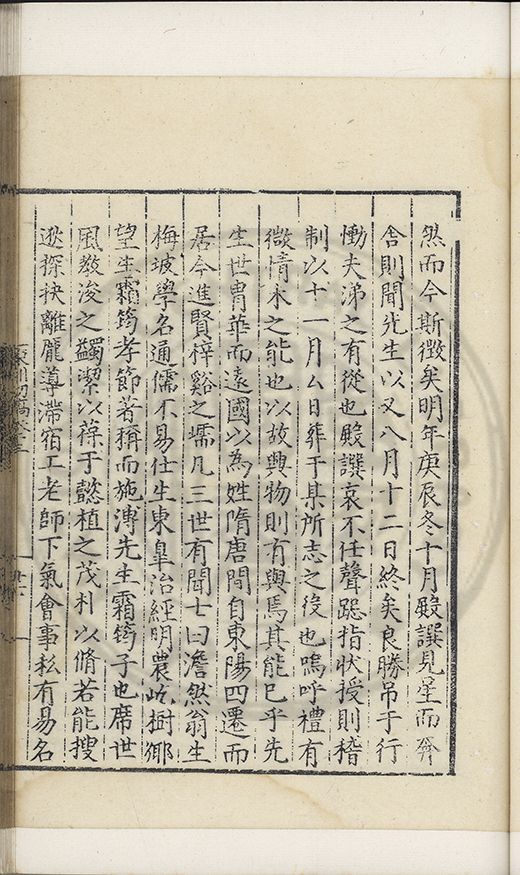 然而今斯徵矣明年庚辰冬十月殿譔見星而奔
舍則聞先生以又八月十二日終矣良勝吊于行
慟夫涕之有從也殿譔哀不任聲跽指狀授則稽
制以十一月厶日葬于某所志之役也嗚呼禮有
微情未之能也以故興物則有與焉其能已乎先
生世胄華而遠國以為姓隋唐間自東陽四遷而
居今進賢梓谿之壖凡三世有聞士曰澹然翁生
梅坡學名通儒不易仕生東皐治經明農屹樹鄉
望生霜筠孝節若稱而施溥先生霜筠子也席世
風教浚之蠲潔以葆于懿植之茂朴以脩若能搜
逖探抉離厖導滯宿工老師下氣會事私有易名
東洲初稿卷十三